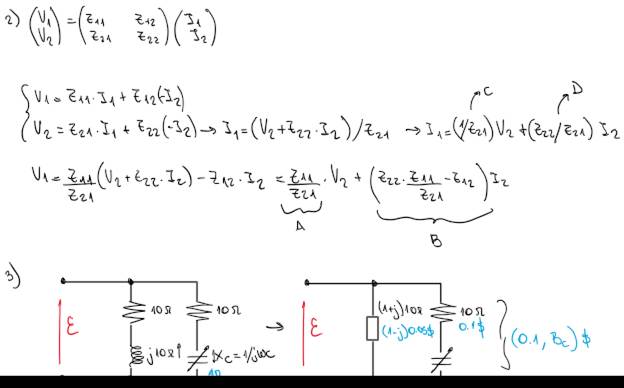 2) (V1 V2) = (z11 z12 z21 z22) (I1 I2)
{ V1 = z11·I1 + z12(-I2)
V2 = z21·I1 + z22(-I2) → I1 = (V2 + z22·I2)/z21 → I1 = (1/z21) V2 + (z22/z21) I2
C D
V1 = z11/z21 (V2 + z22·I2) - z12·I2 = z11/z21 · V2 + (z22·z11/z21 - z12) I2
A B
3)
ε 10Ω 10Ω → ε (1+j)10Ω 10Ω
(1-j)0.05$ 0.1$ (0.1, Bc)$
j10Ω Xc=1/jωc